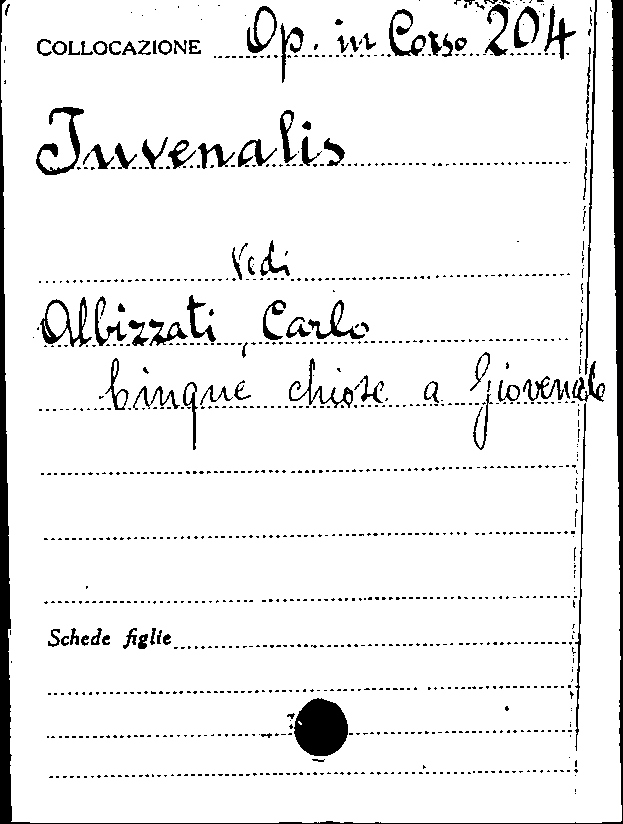 COLLOCAZIONE Op. in Corso 204
Juvenalis
Vedi
Albizzati, Carlo
Cinque chiose a Giovenale
Schede figlie